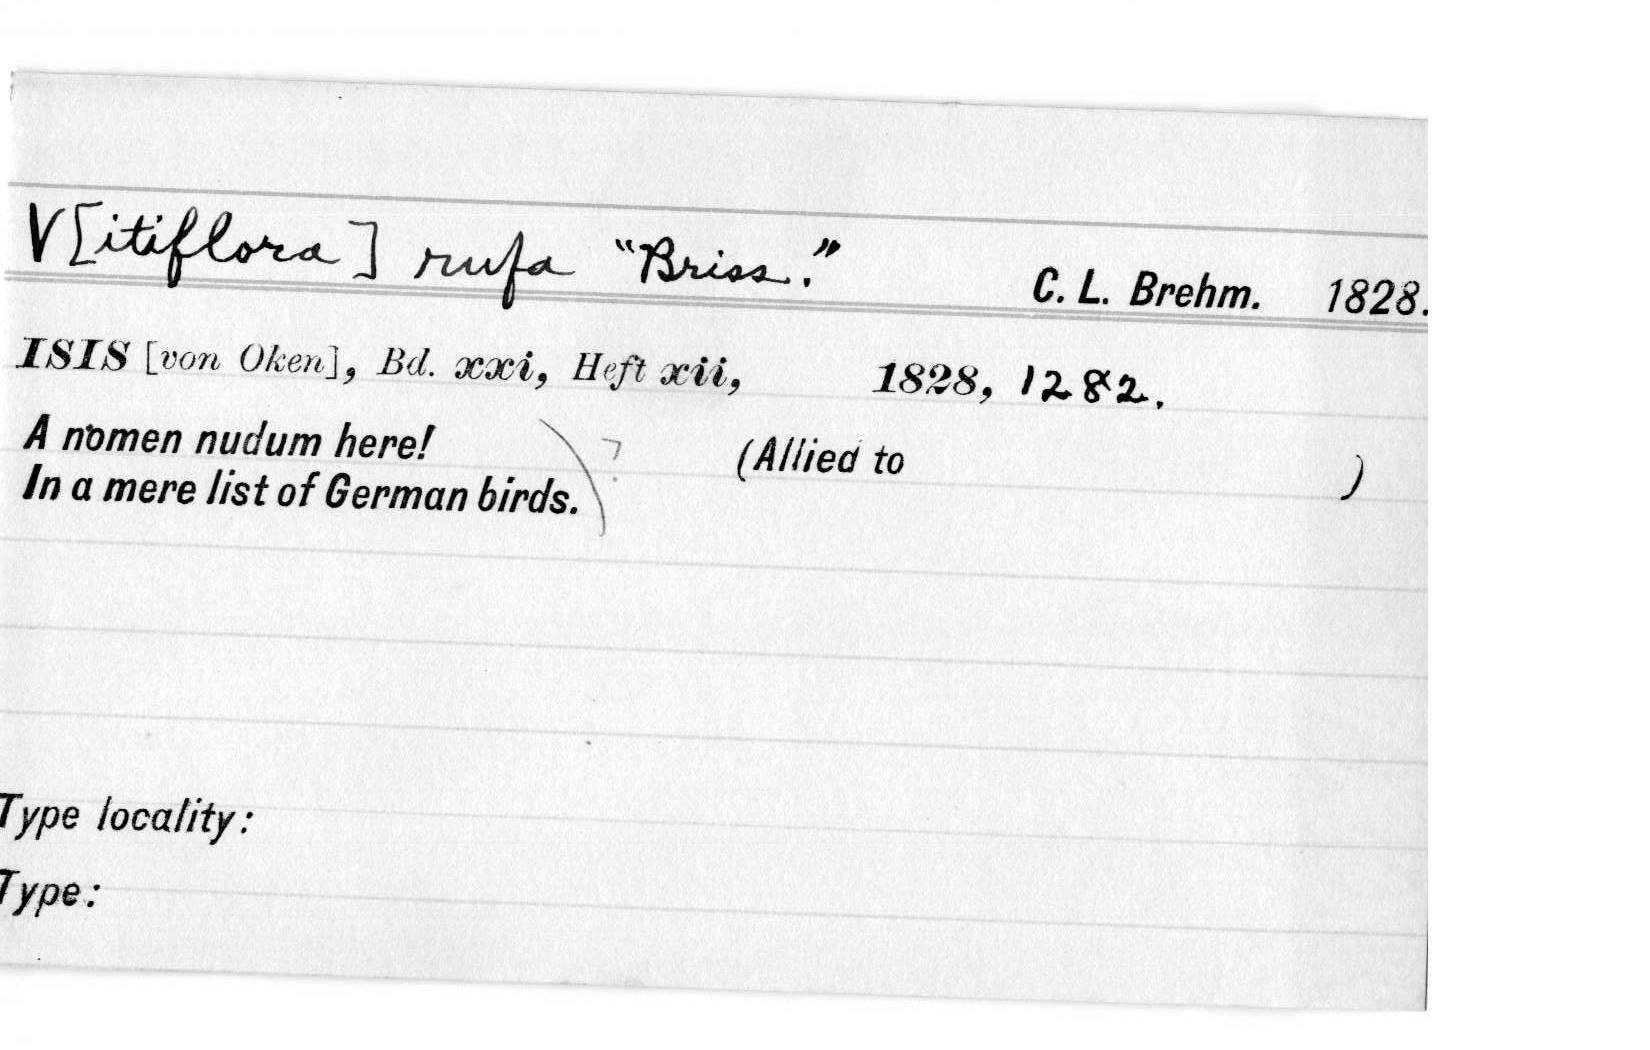 V[itiflora] rufa "Briss." C. L. Brehm. 1828.
ISIS [von Oken], Bd. xxi, Heft xii, 1828, 1282.
A nomen nudum here! ? (Allied to )
In a mere list of German birds.
Type locality:
Type: